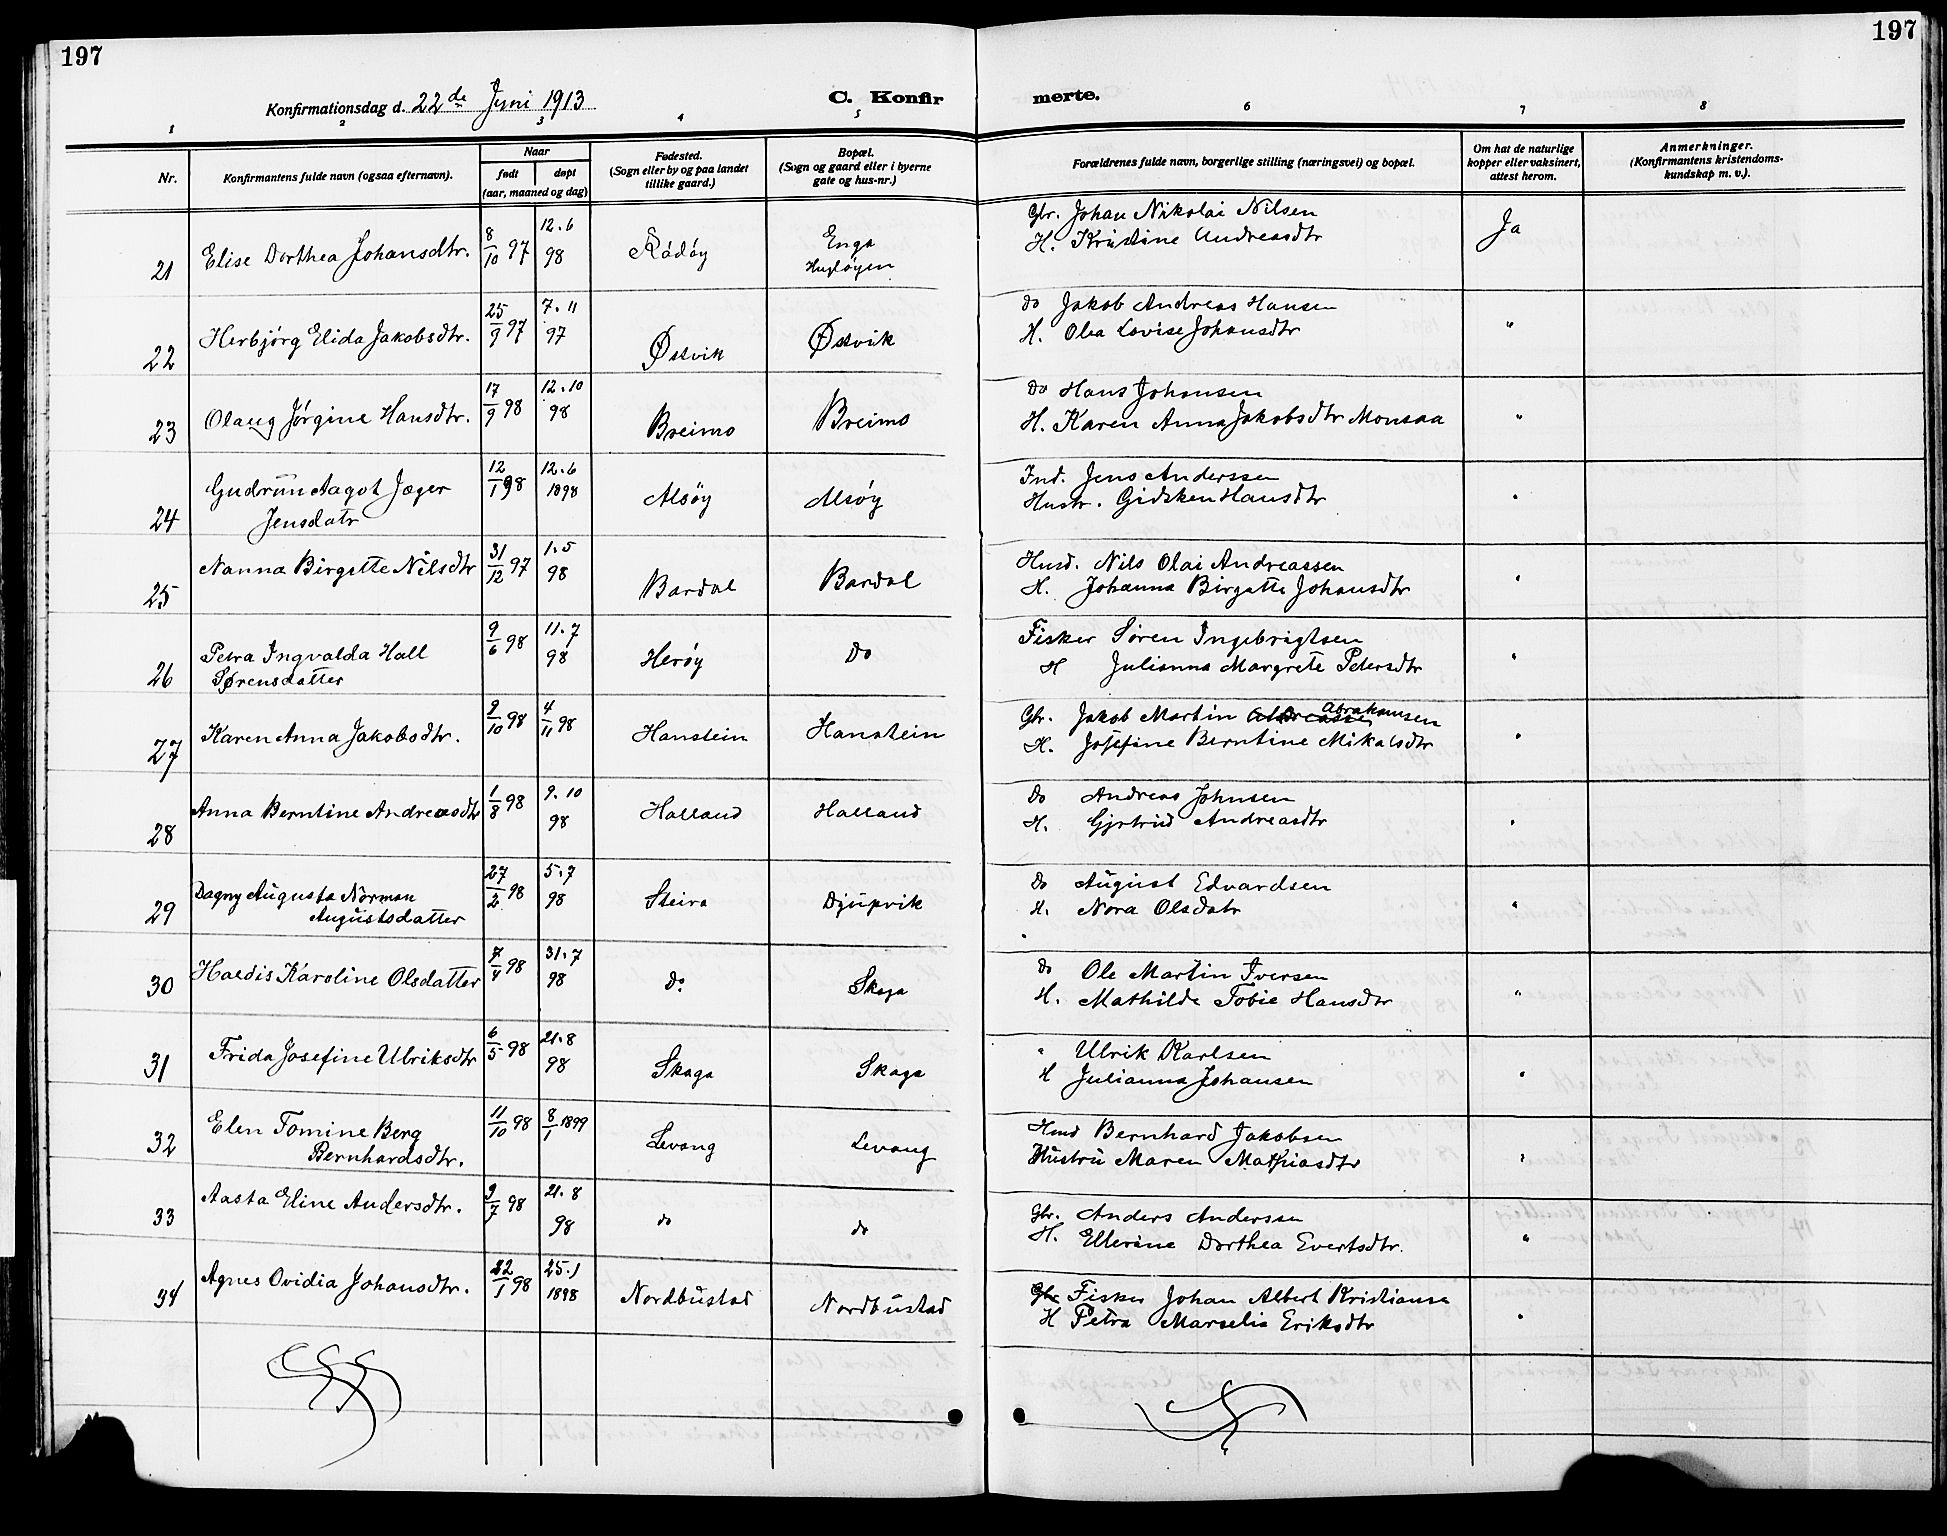 197
197
Konfirmationsdag d. 22de Juni 1913
C. Konfir
merte.
1 2 3 4 5 6 7 8
Nr.
Konfirmantens fulde navn (ogsaa efternavn).
Naar
født døpt
(aar, maaned og dag)
Fødested.
(Sogn eller by og paa landet
tillike gaard.)
Bopæl.
(Sogn og gaard eller i byerne
gate og hus-nr.)
Forældrenes fulde navn, borgerlige stilling (næringsvei) og bopæl.
Om hat de naturlige
kopper eller vaksinert,
attest herom.
Anmerkninger.
(Konfirmantens kristendoms-
kundskap m. v.).
21 Elise Dorthea Johansdtr. 8/10 97 12.6 98 Rødøy Enga
Hugløyen
Gbr. Johan Nikolai Nilsen Ja
H. Kristine Andreasdtr
22 Herbjørg Elida Jakobsdtr. 25/9 97 7.11 97 Østvik Østvik
Do Jakob Andreas Hansen "
H. Olea Lovise Johansdtr
23 Olaug Jørgine Hansdtr. 17/9 98 12.10 98 Breimo Breimo
Do Hans Johansen "
H. Karen Anna Jakobsdtr Monsaa
24 Gudrun Aagot Jæger 12/1 98 12.6 1898 Alsøy Alsøy
Jensdatr
Ind. Jens Anderssen "
Hustr. Gidsken Hansdtr
25 Nanna Birgitte Nilsdtr 31/12 97 1.5 98 Bardal Bardal
Husd. Nils Olai Andreassen "
H. Johanna Birgitte Johansdtr
26 Petra Ingvalda Hall 9/6 98 11.7 98 Herøy Do
Sørensdatter
Fisker Søren Ingebrigtsen "
H Julianna Margrete Petersdtr
27 Karen Anna Jakobsdtr. 9/10 98 4/11 98 Hanstein Hanstein
Gbr. Jakob Martin Abrahamsen "
H. Josefine Berntine Mikalsdtr
28 Anna Berntine Andreasdtr 1/8 98 9.10 98 Halland Halland
Do Andreas Johnsen "
H. Gjertrud Andreasdtr
29 Dagny Augusta Norman 27/2 98 5.7 98 Steiro Djupvik
Augustsdatter
Do August Edvardsen "
H. Nora Olsdatr
30 Haldis Karoline Olsdatter 7/4 98 31.7 98 Do Skaga
Do Ole Martin Iversen "
H. Mathilde Tobie Hansdtr
31 Frida Josefine Ulriksdtr 6/5 98 21.8 98 Skaga Skaga
" Ulrik Karlsen "
H Julianna Johansen
32 Elen Tomine Berg 11/10 98 8/1 1899 Levang Levang
Bernhardsdtr.
Husd Bernhard Jakobsen "
Hustru Maren Mathiasdtr
33 Aasta Eline Andersdtr. 9/7 98 21.8 98 do do
Gbr. Anders Anderssen "
H. Ellerine Dorthea Evertsdtr.
34 Agnes Ovidia Johansdtr. 22/1 98 25.1 1898 Nordbustad Nordbustad
Gbr Fisker Johan Albert Kristianse "
H Petra Marselie Eriksdtr